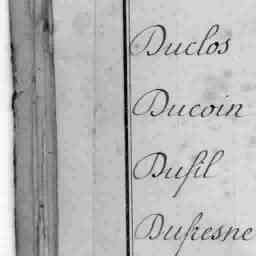 Duclos
Ducoin
Dufil
Dufresne